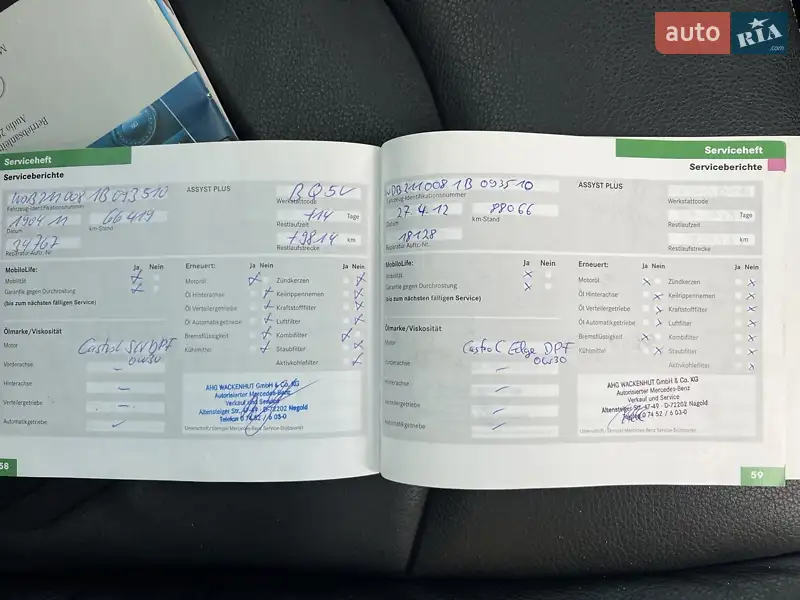 auto RIA
.com
Betriebsanleitung
Audio
Serviceheft
Serviceberichte
WDB211008 1B 093510
Fahrzeug-Identifikationsnummer
1904 11
66419
Datum
km-Stand
34767
Reparatur-Auftr.-Nr.
ASSYST PLUS
BQ5V
Werkstattcode
+14 Tage
Restlaufzeit
+9814 km
Restlaufstrecke
MobiloLife: Ja Nein
Mobilität
Garantie gegen Durchrostung
(bis zum nächsten fälligen Service)
Erneuert: Ja Nein Ja Nein
Motoröl Zündkerzen
Öl Hinterachse Keilrippenriemen
Öl Verteilergetriebe Kraftstofffilter
Öl Automatikgetriebe Luftfilter
Bremsflüssigkeit Kombifilter
Kühlmittel Staubfilter
Aktivkohlefilter
Ölmarke/Viskosität
Motor
Castrol SLV DPF
0W30
Vorderachse
Hinterachse
Verteilergetriebe
Automatikgetriebe
AHG WACKENHUT GmbH & Co. KG
Autorisierter Mercedes-Benz
Verkauf und Service
Altensteiger Str. 47-49 · D-72202 Nagold
Telefon 0 74 52 / 6 03-0
Unterschrift/Stempel Mercedes-Benz Service-Stützpunkt
58
Serviceheft
Serviceberichte
WDB211008 1B 093510
Fahrzeug-Identifikationsnummer
27.4.12
88066
Datum
km-Stand
18128
Reparatur-Auftr.-Nr.
ASSYST PLUS
Werkstattcode
Tage
Restlaufzeit
km
Restlaufstrecke
MobiloLife: Ja Nein
Mobilität
Garantie gegen Durchrostung
(bis zum nächsten fälligen Service)
Erneuert: Ja Nein Ja Nein
Motoröl Zündkerzen
Öl Hinterachse Keilrippenriemen
Öl Verteilergetriebe Kraftstofffilter
Öl Automatikgetriebe Luftfilter
Bremsflüssigkeit Kombifilter
Kühlmittel Staubfilter
Aktivkohlefilter
Ölmarke/Viskosität
Motor
Castrol Edge DPF
0W30
Vorderachse
Hinterachse
Verteilergetriebe
Automatikgetriebe
AHG WACKENHUT GmbH & Co. KG
Autorisierter Mercedes-Benz
Verkauf und Service
Altensteiger Str. 47-49 · D-72202 Nagold
Telefon 0 74 52 / 6 03-0
Unterschrift/Stempel Mercedes-Benz Service-Stützpunkt
59